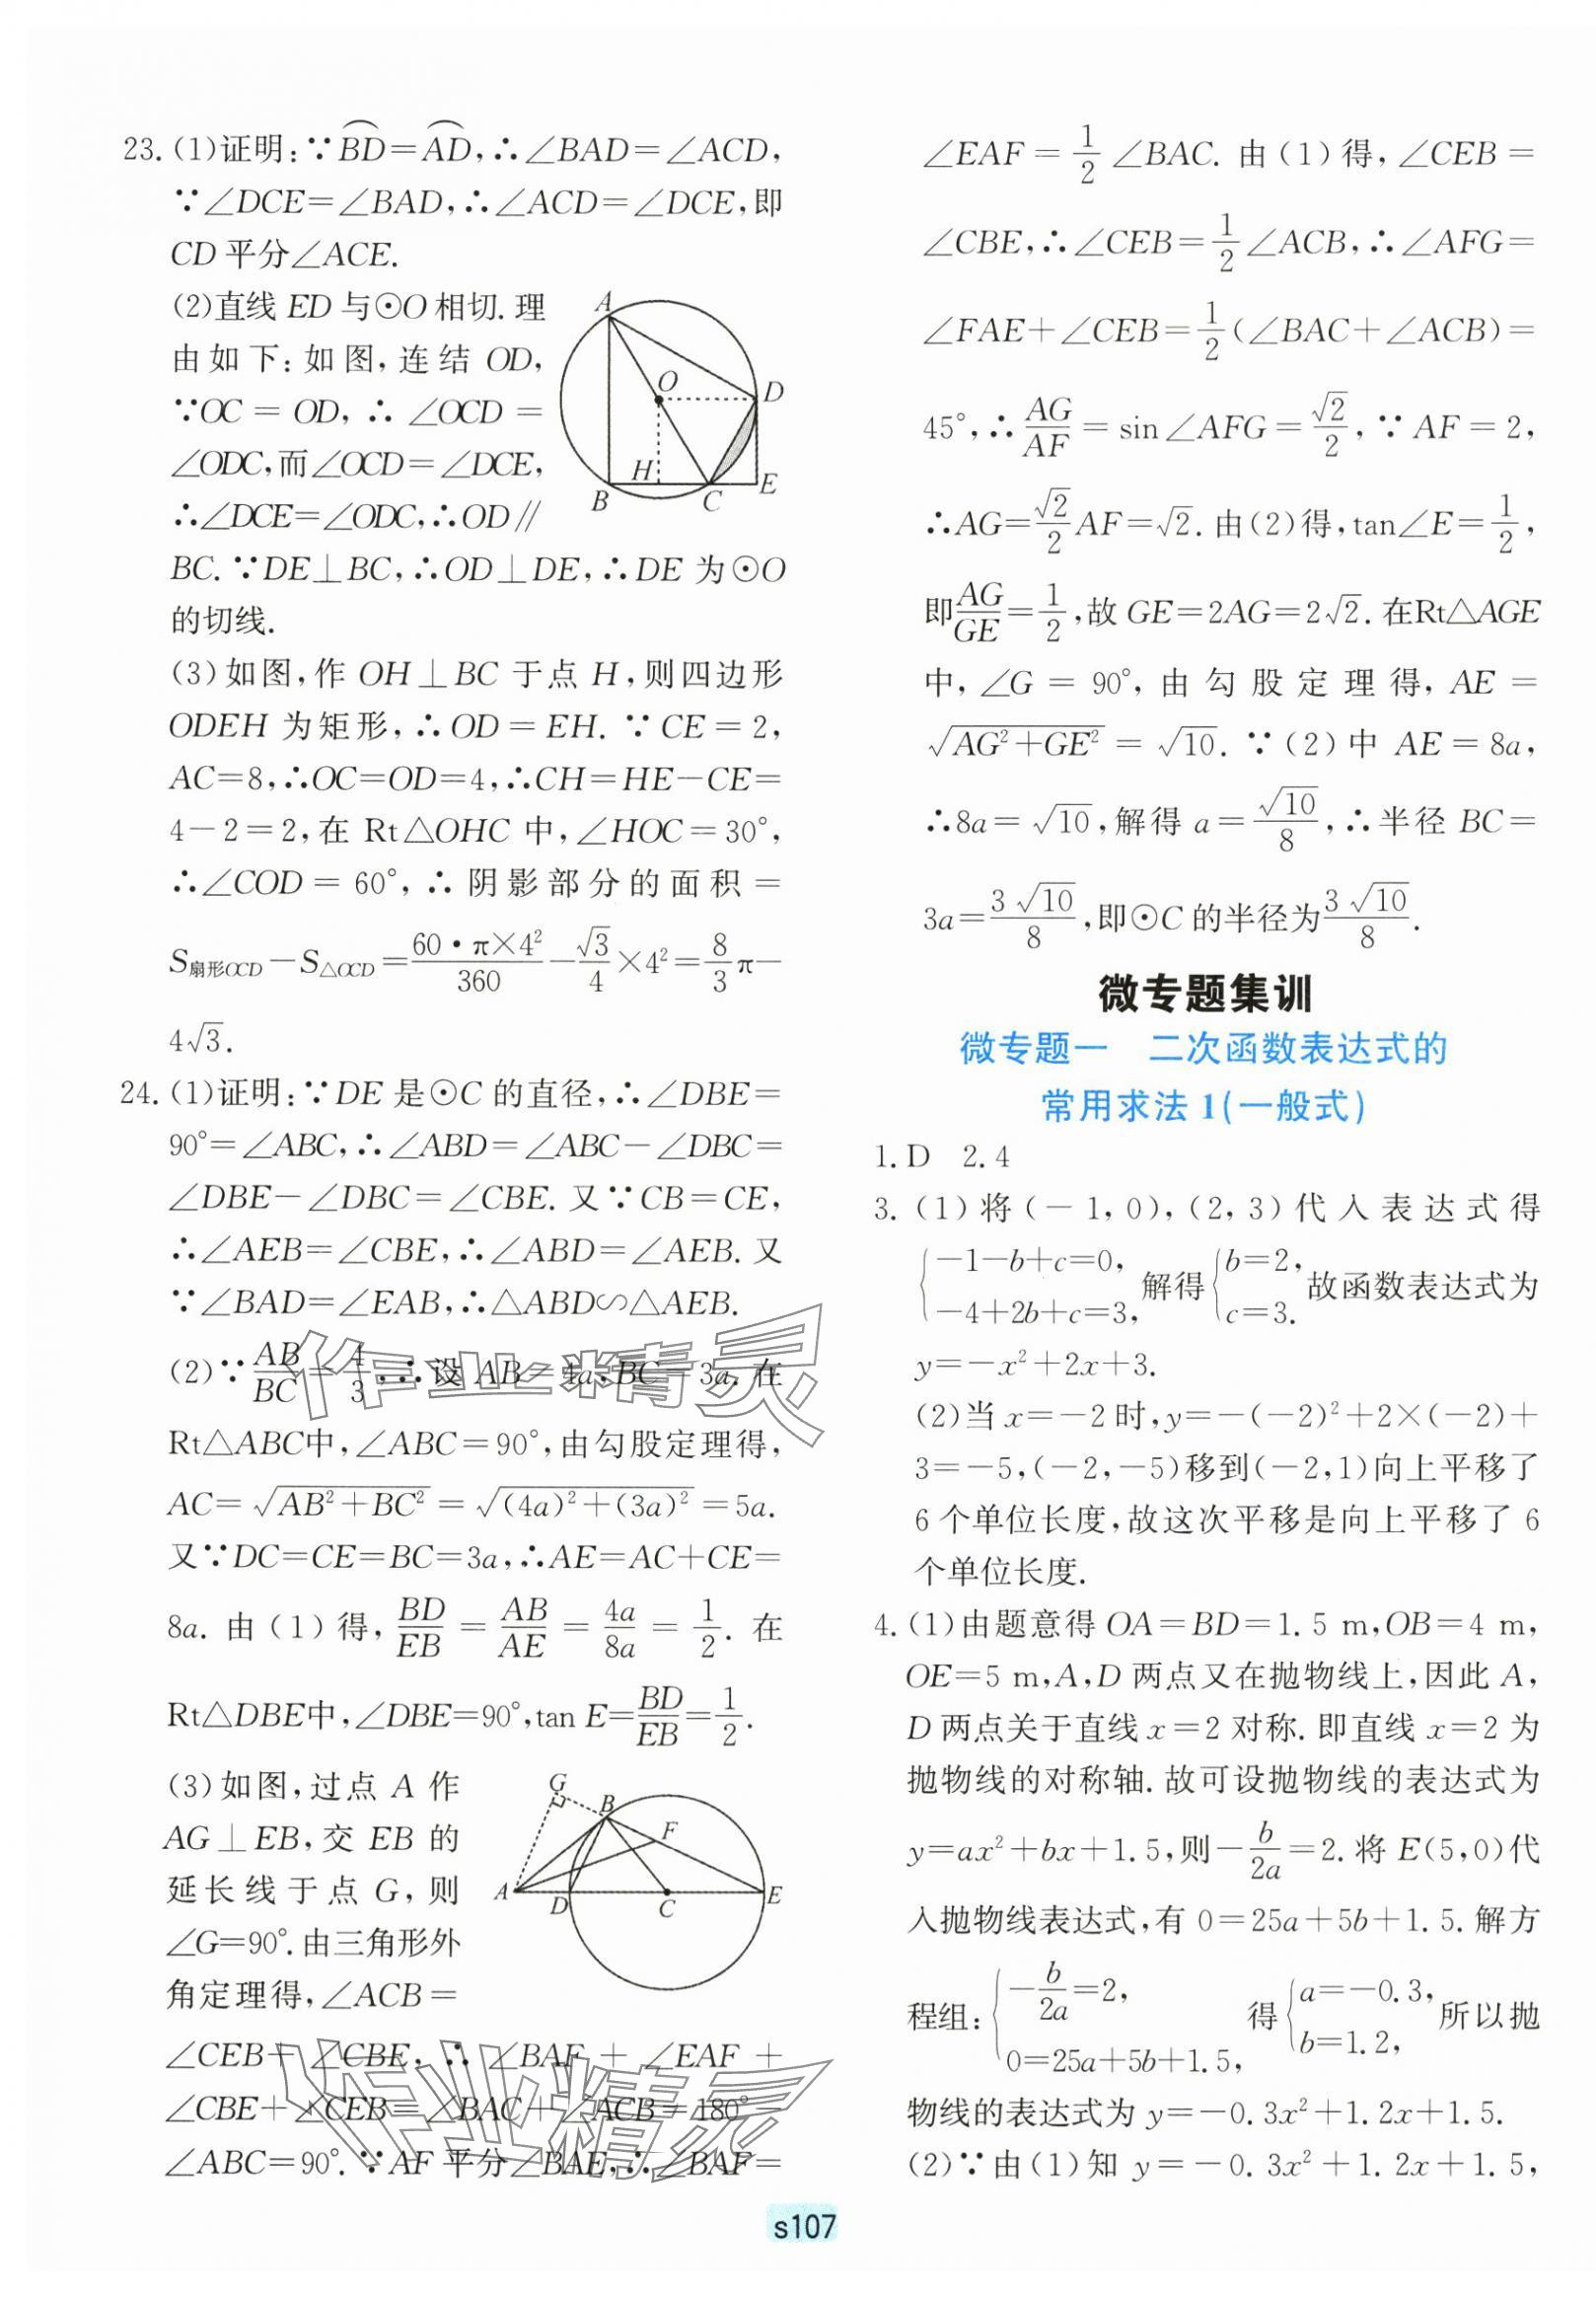 23. (1)证明:∵BD⌒=AD⌒,∴∠BAD=∠ACD,
∵∠DCE=∠BAD,∴∠ACD=∠DCE,即
CD平分∠ACE.
(2)直线 ED 与⊙O 相切. 理
由如下:如图,连结 OD,
∵OC = OD, ∴ ∠OCD =
∠ODC,而∠OCD=∠DCE,
∴∠DCE=∠ODC,∴OD∥
BC. ∵DE⊥BC,∴OD⊥DE,∴DE 为⊙O
的切线.
A
O
D
H
B
C
E
(3)如图,作 OH⊥BC 于点 H,则四边形
ODEH 为矩形,∴OD=EH. ∵CE=2,
AC=8,∴OC=OD=4,∴CH=HE-CE=
4-2=2,在 Rt△OHC 中,∠HOC=30°,
∴∠COD = 60°, ∴ 阴影部分的面积 =
S扇形OCD-S△OCD=60·π×4²/360-√3/4×4²=8/3π-
4√3.
24. (1)证明:∵DE 是⊙C 的直径,∴∠DBE=
90°=∠ABC,∴∠ABD=∠ABC-∠DBC=
∠DBE-∠DBC=∠CBE. 又∵CB=CE,
∴∠AEB=∠CBE,∴∠ABD=∠AEB. 又
∵∠BAD=∠EAB,∴△ABD∽△AEB.
(2)∵AB/BC=4/3,∴设 AB=4a,BC=3a. 在
Rt△ABC中,∠ABC=90°,由勾股定理得,
AC=√(AB²+BC²)=√((4a)²+(3a)²)=5a.
又∵DC=CE=BC=3a,∴AE=AC+CE=
8a. 由(1)得,BD/EB=AB/AE=4a/8a=1/2. 在
Rt△DBE中,∠DBE=90°,tan E=BD/EB=1/2.
(3)如图,过点 A 作
AG⊥EB,交 EB 的
延长线于点 G,则
∠G=90°. 由三角形外
角定理得,∠ACB=
G
B
F
A
D
C
E
∠CEB+∠CBE,∴∠BAF+∠EAF+
∠CBE+∠CEB=∠BAC+∠ACB=180°-
∠ABC=90°. ∵AF 平分∠BAE,∴∠BAF=
∠EAF=1/2∠BAC. 由(1)得,∠CEB=
∠CBE,∴∠CEB=1/2∠ACB,∴∠AFG=
∠FAE+∠CEB=1/2(∠BAC+∠ACB)=
45°,∴AG/AF=sin∠AFG=√2/2,∵AF=2,
∴AG=√2/2AF=√2. 由(2)得,tan∠E=1/2,
即AG/GE=1/2,故 GE=2AG=2√2. 在Rt△AGE
中,∠G = 90°, 由勾股定理得, AE =
√(AG²+GE²)=√10. ∵(2)中 AE=8a,
∴8a=√10,解得 a=√10/8,∴半径 BC=
3a=3√10/8,即⊙C 的半径为3√10/8.
微专题集训
微专题一 二次函数表达式的
常用求法1(一般式)
1. D 2. 4
3. (1)将(-1,0),(2,3)代入表达式得
{-1-b+c=0, -4+2b+c=3, 解得{b=2, c=3. 故函数表达式为
y=-x²+2x+3.
(2)当 x=-2 时,y=-(-2)²+2×(-2)+
3=-5,(-2,-5)移到(-2,1)向上平移了
6个单位长度,故这次平移是向上平移了 6
个单位长度.
4. (1)由题意得 OA=BD=1.5 m,OB=4 m,
OE=5 m,A,D 两点又在抛物线上,因此 A,
D 两点关于直线 x=2 对称. 即直线 x=2 为
抛物线的对称轴. 故可设抛物线的表达式为
y=ax²+bx+1.5,则-b/2a=2. 将 E(5,0)代
入抛物线表达式,有 0=25a+5b+1.5. 解方
程组:{-b/2a=2, 0=25a+5b+1.5, 得{a=-0.3, b=1.2, 所以抛
物线的表达式为 y=-0.3x²+1.2x+1.5.
(2)∵由(1)知 y=-0.3x²+1.2x+1.5,
作业精灵
作业精灵
s107